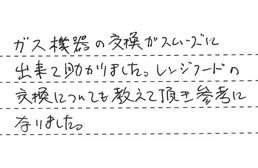 ガス機器の交換がスムーズに
出来て助かりました。レンジフードの
交換についても教えて頂き参考に
なりました。